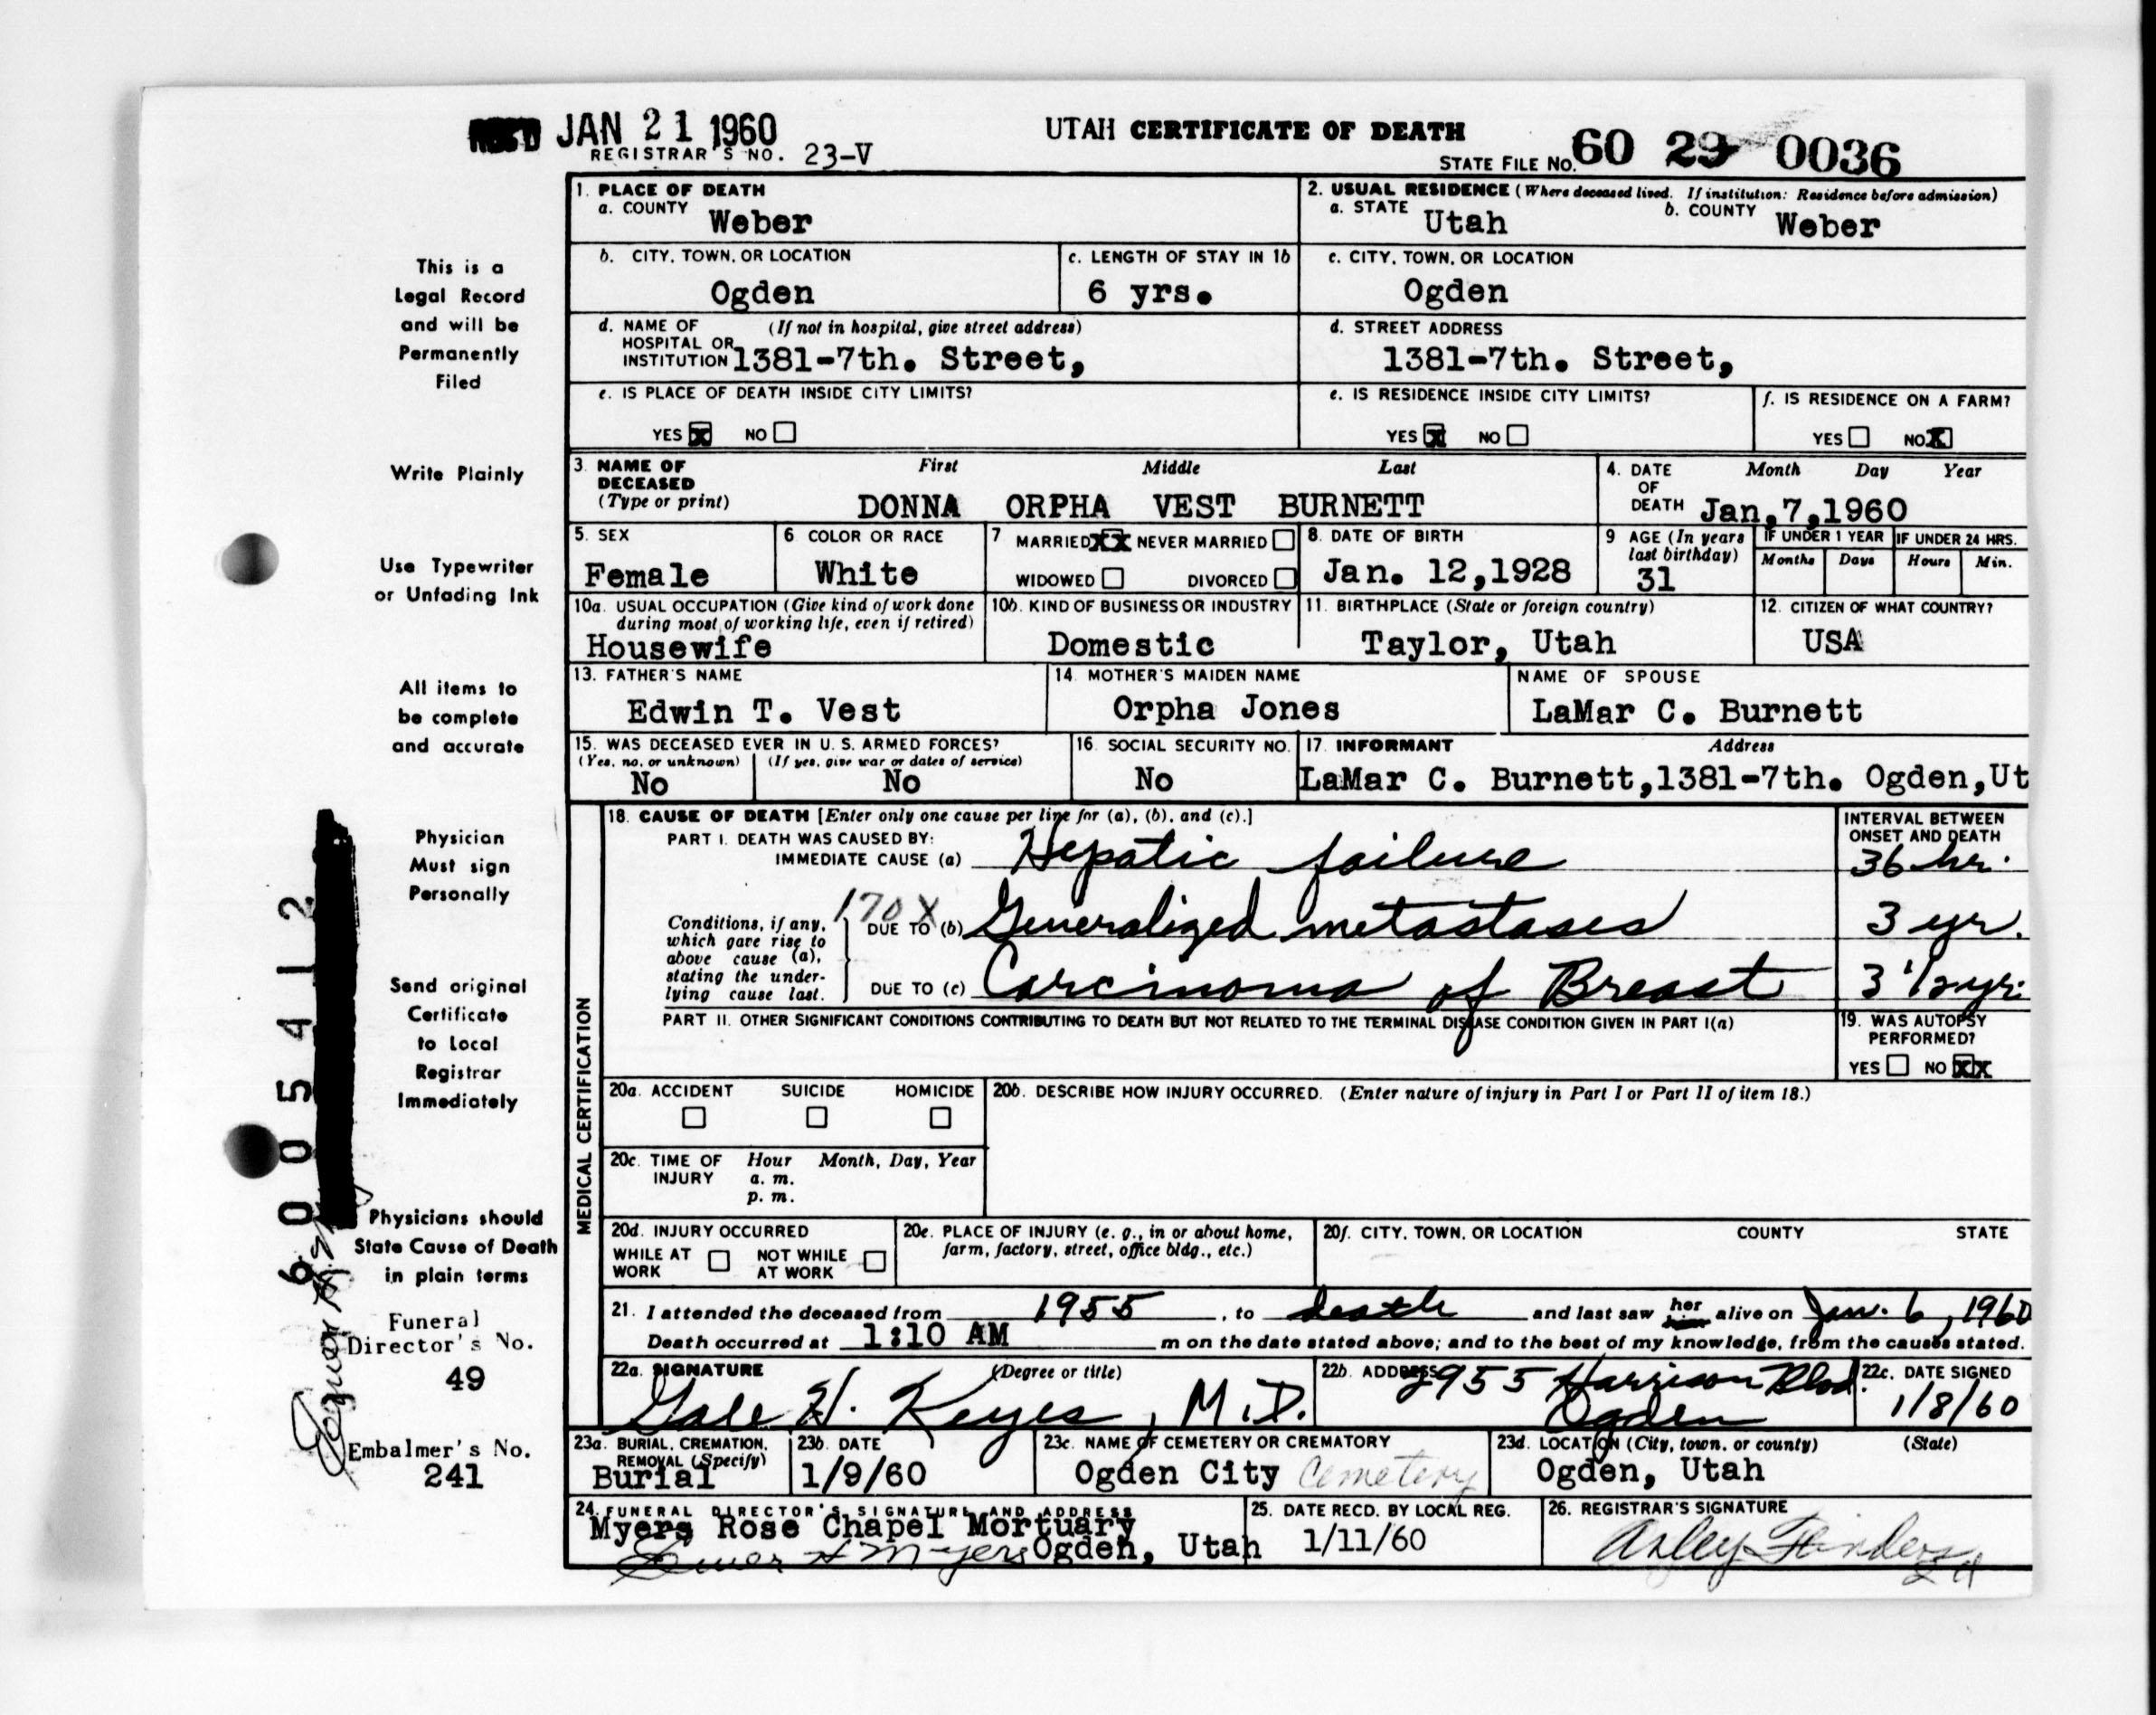 REC'D JAN 21 1960
UTAH CERTIFICATE OF DEATH
REGISTRAR'S NO. 23-V
STATE FILE NO. 60 29 0036
This is a
Legal Record
and will be
Permanently
Filed
Write Plainly
Use Typewriter
or Unfading Ink
All items to
be complete
and accurate
Physician
Must sign
Personally
Send original
Certificate
to Local
Registrar
Immediately
Physicians should
State Cause of Death
in plain terms
Funeral
Director's No.
49
Embalmer's No.
241
6005412
1. PLACE OF DEATH
a. COUNTY Weber
2. USUAL RESIDENCE (Where deceased lived. If institution: Residence before admission)
a. STATE Utah b. COUNTY Weber
b. CITY, TOWN, OR LOCATION
Ogden
c. LENGTH OF STAY IN 1b
6 yrs.
c. CITY, TOWN, OR LOCATION
Ogden
d. NAME OF (If not in hospital, give street address)
HOSPITAL OR
INSTITUTION 1381-7th. Street,
d. STREET ADDRESS
1381-7th. Street,
e. IS PLACE OF DEATH INSIDE CITY LIMITS?
YES X NO
e. IS RESIDENCE INSIDE CITY LIMITS?
YES X NO
f. IS RESIDENCE ON A FARM?
YES NO X
3. NAME OF First Middle Last
DECEASED
(Type or print) DONNA ORPHA VEST BURNETT
4. DATE Month Day Year
OF
DEATH Jan,7,1960
5. SEX
Female
6 COLOR OR RACE
White
7 MARRIED XX NEVER MARRIED
WIDOWED DIVORCED
8. DATE OF BIRTH
Jan. 12,1928
9 AGE (In years
last birthday)
31
IF UNDER 1 YEAR
Months Days
IF UNDER 24 HRS.
Hours Min.
10a. USUAL OCCUPATION (Give kind of work done
during most of working life, even if retired)
Housewife
10b. KIND OF BUSINESS OR INDUSTRY
Domestic
11. BIRTHPLACE (State or foreign country)
Taylor, Utah
12. CITIZEN OF WHAT COUNTRY?
USA
13. FATHER'S NAME
Edwin T. Vest
14. MOTHER'S MAIDEN NAME
Orpha Jones
NAME OF SPOUSE
LaMar C. Burnett
15. WAS DECEASED EVER IN U. S. ARMED FORCES?
(Yes, no, or unknown) (If yes, give war or dates of service)
No No
16. SOCIAL SECURITY NO.
No
17. INFORMANT Address
LaMar C. Burnett,1381-7th. Ogden,Ut
MEDICAL CERTIFICATION
18. CAUSE OF DEATH [Enter only one cause per line for (a), (b), and (c).]
PART I. DEATH WAS CAUSED BY:
IMMEDIATE CAUSE (a) Hepatic failure
INTERVAL BETWEEN
ONSET AND DEATH
36 hr.
170 X
Conditions, if any,
which gave rise to
above cause (a),
stating the under-
lying cause last.
DUE TO (b) Generalized metastases 3 yr.
DUE TO (c) Carcinoma of Breast 3 1/2 yr.
PART II. OTHER SIGNIFICANT CONDITIONS CONTRIBUTING TO DEATH BUT NOT RELATED TO THE TERMINAL DISEASE CONDITION GIVEN IN PART I(a)
19. WAS AUTOPSY
PERFORMED?
YES NO XX
20a. ACCIDENT SUICIDE HOMICIDE
20b. DESCRIBE HOW INJURY OCCURRED. (Enter nature of injury in Part I or Part II of item 18.)
20c. TIME OF Hour Month, Day, Year
INJURY a. m.
p. m.
20d. INJURY OCCURRED
WHILE AT NOT WHILE
WORK AT WORK
20e. PLACE OF INJURY (e. g., in or about home,
farm, factory, street, office bldg., etc.)
20f. CITY, TOWN, OR LOCATION COUNTY STATE
21. I attended the deceased from 1955, to death and last saw her him alive on Jan. 6, 1960
Death occurred at 1:10 AM m on the date stated above; and to the best of my knowledge, from the causes stated.
22a. SIGNATURE (Degree or title)
Gale H. Keyes, M.D.
22b. ADDRESS 2955 Harrison Blvd.
Ogden
22c. DATE SIGNED
1/8/60
23a. BURIAL, CREMATION,
REMOVAL (Specify)
Burial
23b. DATE
1/9/60
23c. NAME OF CEMETERY OR CREMATORY
Ogden City Cemetery
23d. LOCATION (City, town, or county) (State)
Ogden, Utah
24. FUNERAL DIRECTOR'S SIGNATURE AND ADDRESS
Myers Rose Chapel Mortuary
Ogden, Utah
25. DATE RECD. BY LOCAL REG.
1/11/60
26. REGISTRAR'S SIGNATURE